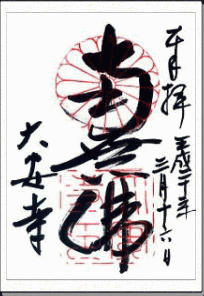 奉拝
平成二十年
三月十六日
南無佛
大安寺